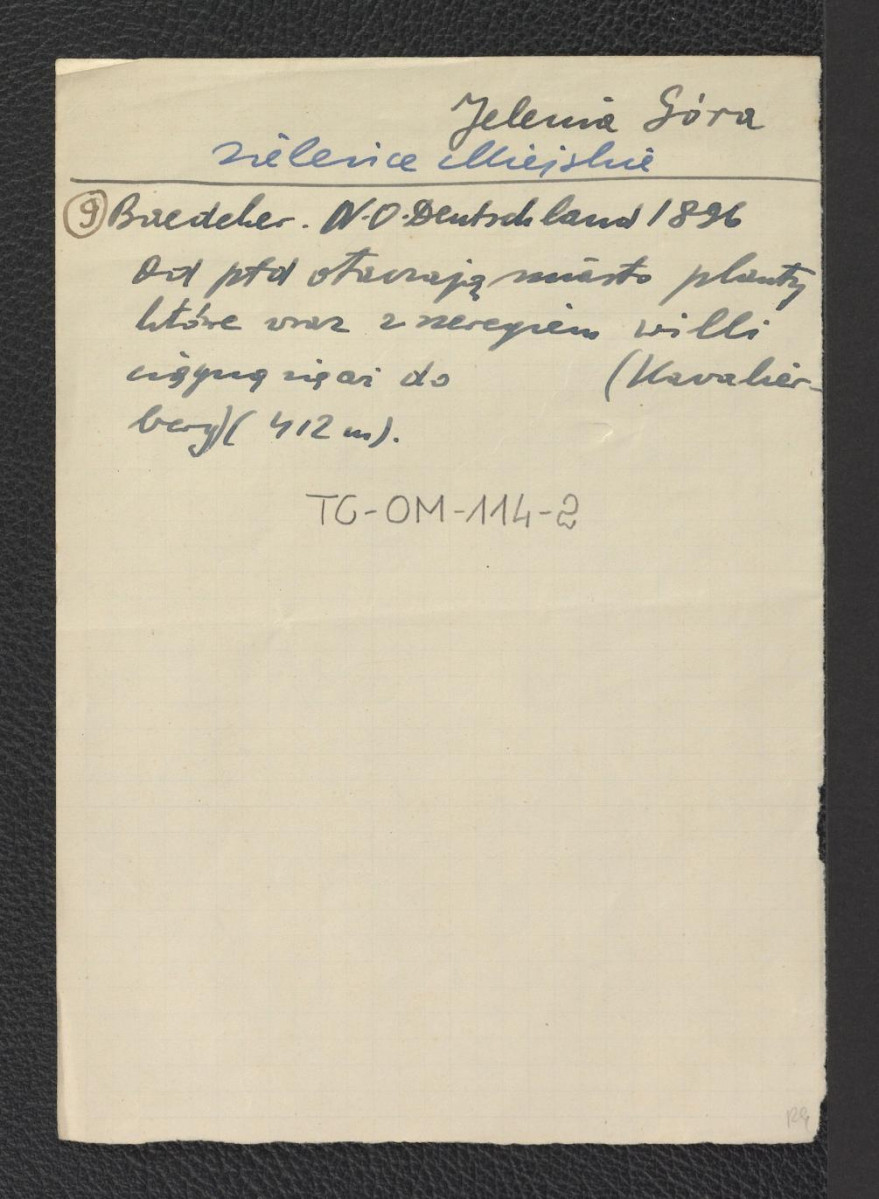 Jelenia Góra
zieleńce Miejskie
⑨ Baedeker. N-O-Deutschland 1896
Od płd otaczają miasto planty
które wraz z szeregiem willi
ciągną się aż do (Kavalier-
berg) (412 m).
TG-OM-114-2